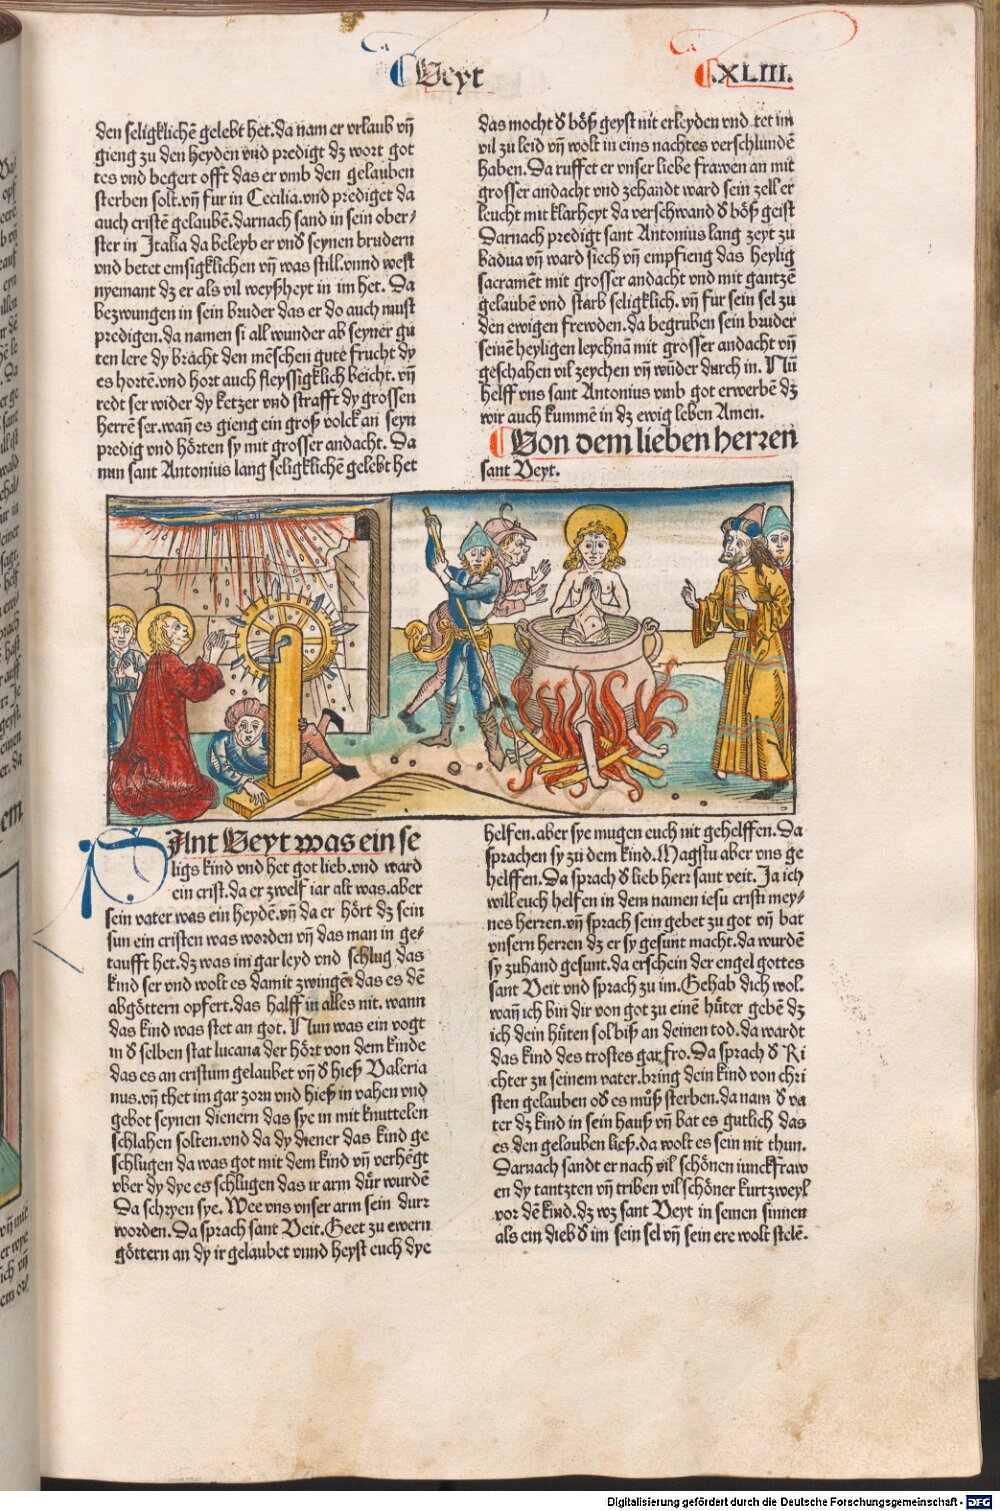 Veyt
XLIII.
den seligklichē gelebt het. da nam er vrlaub vñ
gieng zu den heyden vnd predigt dz wort got
tes vnd begert offt das er vmb den gelauben
sterben solt. vñ fur in Cecilia. vnd prediget da
auch cristē gelaubē. darnach sand in sein ober⸗
ster in Italia da beleyb er vnd seynen brudern
vnd betet emsigklichen vñ was still. vnnd west
nyemant dz er als vil weyßheyt in im het. Da
bezwungen in sein bruder das er do auch must
predigen. da namen si all wunder ab seyner gu
ten lere dy bracht den mēschen gute frucht dy
es hortē. vnd hort auch fleyssigklich beicht. vñ
redt ser wider dy ketzer vnd strafft dy grossen
herrē ser. wañ es gieng ein groß volck an seyn
predig vnd hörten sy mit grosser andacht. Da
nun sant Antonius lang seligklichē gelebt het
das mocht d̕ böß geyst nit erleyden vnd tet im
vil zu leid vñ wolt in eins nachtes verschlundē
haben. Da ruffet er vnser liebe frawen an mit
grosser andacht vnd zehandt ward sein zell er
leucht mit klarheyt da verschwand d̕ böß geist
Darnach predigt sant Antonius lang zeyt zu
Badua vñ ward siech vñ empfieng das heylig
sacramēt mit grosser andacht vnd mit gantzē
gelaubē vnd starb seligklich. vñ für sein sel zu
den ewigen frewden. da begruben sein bruder
seinē heyligen leychnā mit grosser andacht vñ
geschahen vil zeychen vñ wūder durch in. Nū
helff vns sant Antonius vmb got erwerbē dz
wir auch kummē in dz ewig leben Amen.
Von dem lieben herren
sant Veyt.
SAnt Veyt was ein se
ligs kind vnd het got lieb. vnd ward
ein crist. da er zwelf iar alt was. aber
sein vater was ein heydē. vñ da er hört dz sein
sun ein cristen was worden vñ das man in ge⸗
taufft het. dz was im gar leyd vnd schlug das
kind ser vnd wolt es damit zwingē. das es dē
abgöttern opfert. das halff in alles nit. wann
das kind was stet an got. Nun was ein vogt
in d̕ selben stat lucana der hört von dem kinde
das es an cristum gelaubet vñ d̕ hieß Valeria
nus. vñ thet im gar zorn vnd hieß in vahen vnd
gebot seynen dienern das sye in mit knuttelen
schlahen solten. vnd da dy diener das kind ge
schlugen da was got mit dem kind vñ verhēgt
vber dy dye es schlugen das ir arm dür wurdē
Da schryen sye. Wee vns vnser arm sein durr
worden. Da sprach sant Veit. Geet zu ewern
göttern an dy ir gelaubet vnnd heyst euch dye
helfen. aber sye mugen euch nit gehelffen. Da
sprachen sy zu dem kind. Magstu aber vns ge
helffen. Da sprach d̕ lieb herr sant veit. Ja ich
will euch helfen in dem namen iesu cristi mey⸗
nes herren. vñ sprach sein gebet zu got vñ bat
vnsern herren dz er sy gesunt macht. da wurdē
sy zuhand gesunt. da erschein der engel gottes
sant Veit vnd sprach zu im. Gehab dich wol.
wañ ich bin dir von got zu einē hüter gebē dz
ich dein hüten sol biß an deinen tod. da wardt
das kind des trostes gar fro. Da sprach d̕ Ri
chter zu seinem vater. bring dein kind von chri
sten gelauben od̕ es müß sterben. da nam d̕ va
ter dz kind in sein hauß vñ bat es gutlich das
es den gelauben ließ. da wolt es sein nit thun.
Darnach sandt er nach vil schönen iunckfraw
en dy tantzten vñ triben vil schöner kurtzweyl
vor dē kind. dz wz sant Veyt in seinen sinnen
als ein dieb d̕ im sein sel vñ sein ere wolt stelē.
Digitalisierung gefördert durch die Deutsche Forschungsgemeinschaft - DFG